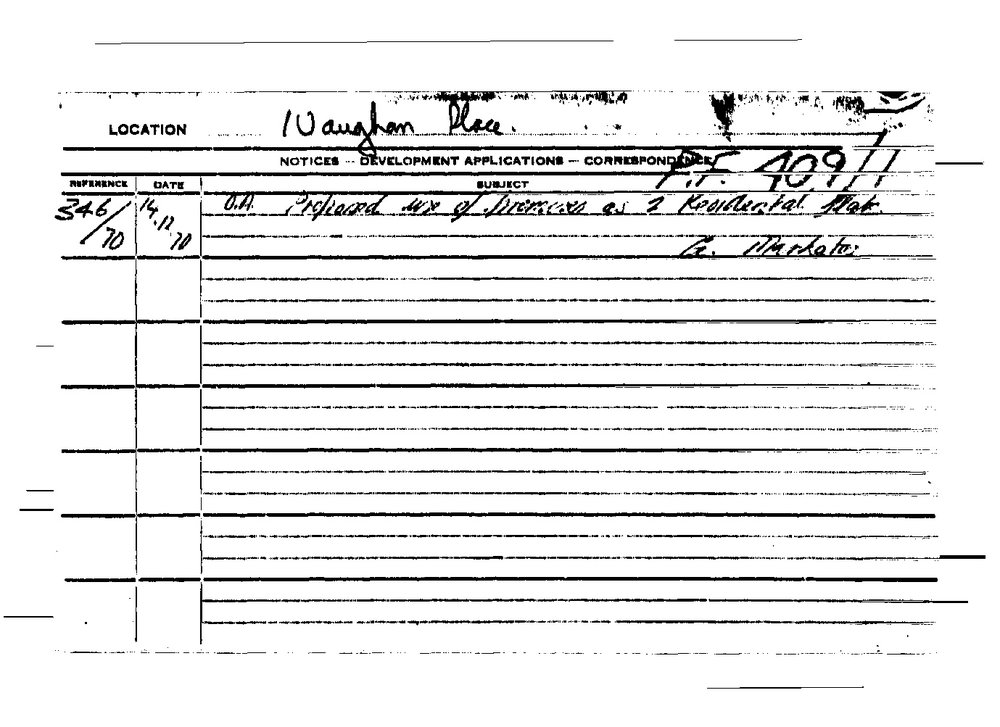 LOCATION 1 Vaughan Place.
NOTICES — DEVELOPMENT APPLICATIONS — CORRESPONDENCE P.F. 409/1
REFERENCE DATE SUBJECT
346/70 14.12.70 D.A. Proposed use of premises as 2 Residential flats.
G. Markatos